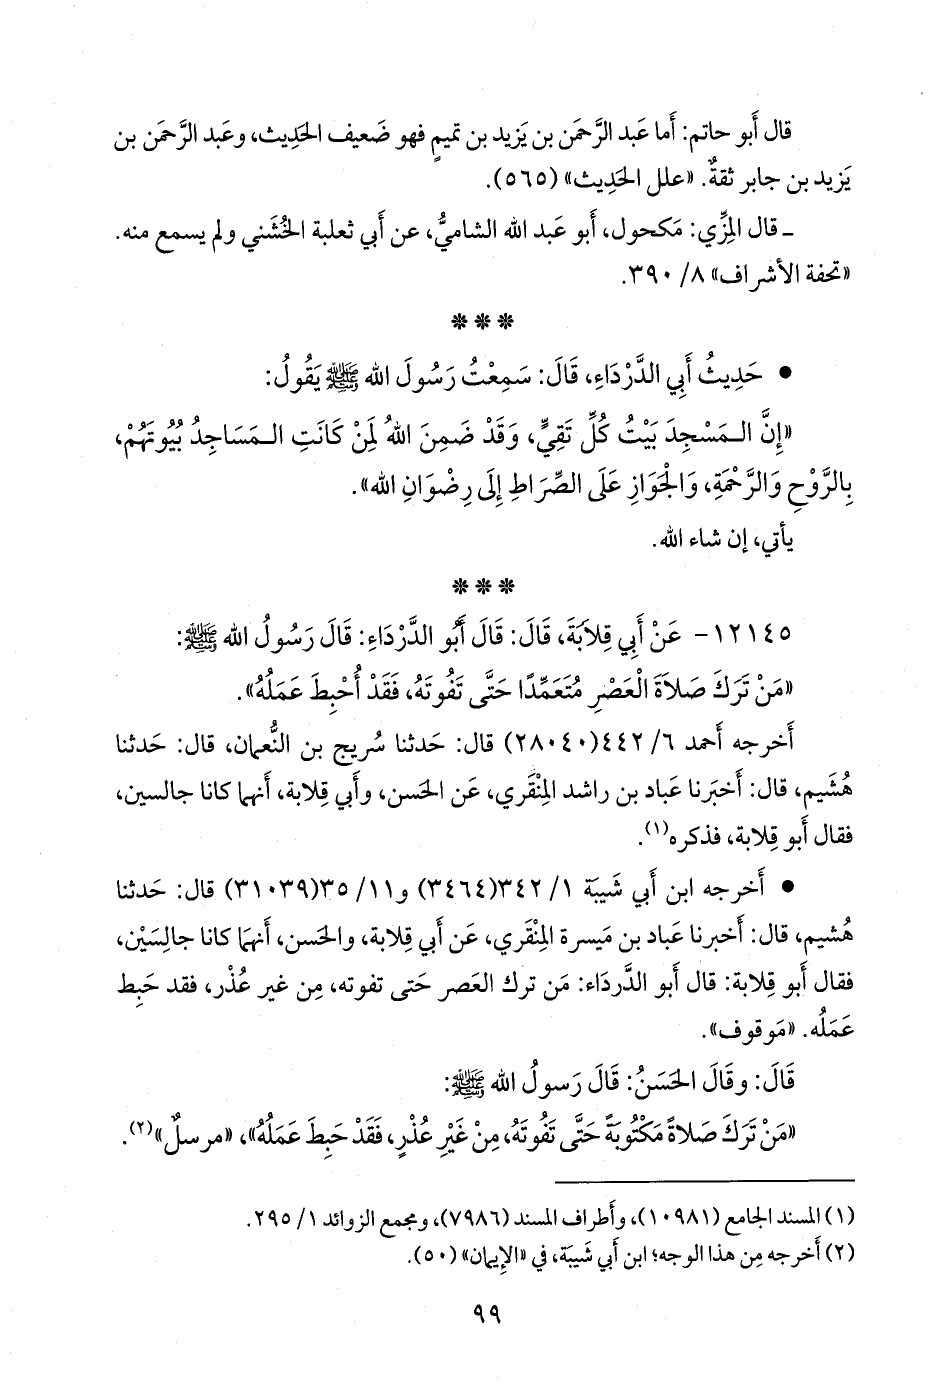 قال أَبو حاتم: أَما عَبد الرَّحمَن بن يَزيد بن تميمٍ فهو ضَعيف الحَدِيث، وعَبد الرَّحمَن بن
يَزيد بن جابر ثقةٌ. «علل الحَدِيث» (٥٦٥).
ـ قال المِزِّي: مَكحول، أَبو عَبد الله الشاميُّ، عن أَبي ثعلبة الخُشَني ولم يسمع منه.
«تحفة الأشراف» ٨/ ٣٩٠.
* * *
● حَدِيثُ أَبِي الدَّرْدَاءِ، قَالَ: سَمِعْتُ رَسُولَ الله ﷺ يَقُولُ:
«إِنَّ الـمَسْجِدَ بَيْتُ كُلِّ تَقِيٍّ، وَقَدْ ضَمِنَ اللهُ لِمَنْ كَانَتِ الـمَسَاجِدُ بُيُوتَهُمْ،
بِالرَّوْحِ وَالرَّحْمَةِ، وَالْجَوَازِ عَلَى الصِّرَاطِ إِلَى رِضْوَانِ الله».
يأتي، إن شاء الله.
* * *
١٢١٤٥- عَنْ أَبِي قِلاَبَةَ، قَالَ: قَالَ أَبُو الدَّرْدَاءِ: قَالَ رَسُولُ الله ﷺ:
«مَنْ تَرَكَ صَلاَةَ الْعَصْرِ مُتَعَمِّدًا حَتَّى تَفُوتَهُ، فَقَدْ أُحْبِطَ عَمَلُهُ».
أَخرجه أَحمد ٦/ ٤٤٢(٢٨٠٤٠) قال: حَدثنا سُريج بن النُّعمان، قال: حَدثنا
هُشَيم، قال: أَخبَرنا عَباد بن راشد المِنْقَري، عَن الحَسن، وأَبي قِلابة، أَنهما كانا جالسين،
فقال أَبو قِلابة، فذكره(١).
● أَخرجه ابن أَبي شَيبَة ١/ ٣٤٢(٣٤٦٤) و١١/ ٣٥(٣١٠٣٩) قال: حَدثنا
هُشيم، قال: أَخبرنا عَباد بن مَيسرة المِنْقَري، عَن أَبي قِلابة، والحَسن، أَنهما كانا جالِسَيْن،
فقال أَبو قِلابة: قال أَبو الدَّرداء: مَن ترك العَصر حَتى تفوته، مِن غير عُذْر، فقد حَبِط
عَمَلُه. «مَوقوف».
قَالَ: وقَالَ الحَسَنُ: قَالَ رَسولُ الله ﷺ:
«مَنْ تَرَكَ صَلاَةً مَكْتُوبَةً حَتَّى تَفُوتَهُ، مِنْ غَيْرِ عُذْرٍ، فَقَدْ حَبِطَ عَمَلُهُ»، «مرسلٌ»(٢).
(١) المسند الجامع (١٠٩٨١)، وأَطراف المسند (٧٩٨٦)، ومجمع الزوائد ١/ ٢٩٥.
(٢) أَخرجه مِن هذا الوجه؛ ابن أَبي شَيبَة، في «الإِيمان» (٥٠).
٩٩